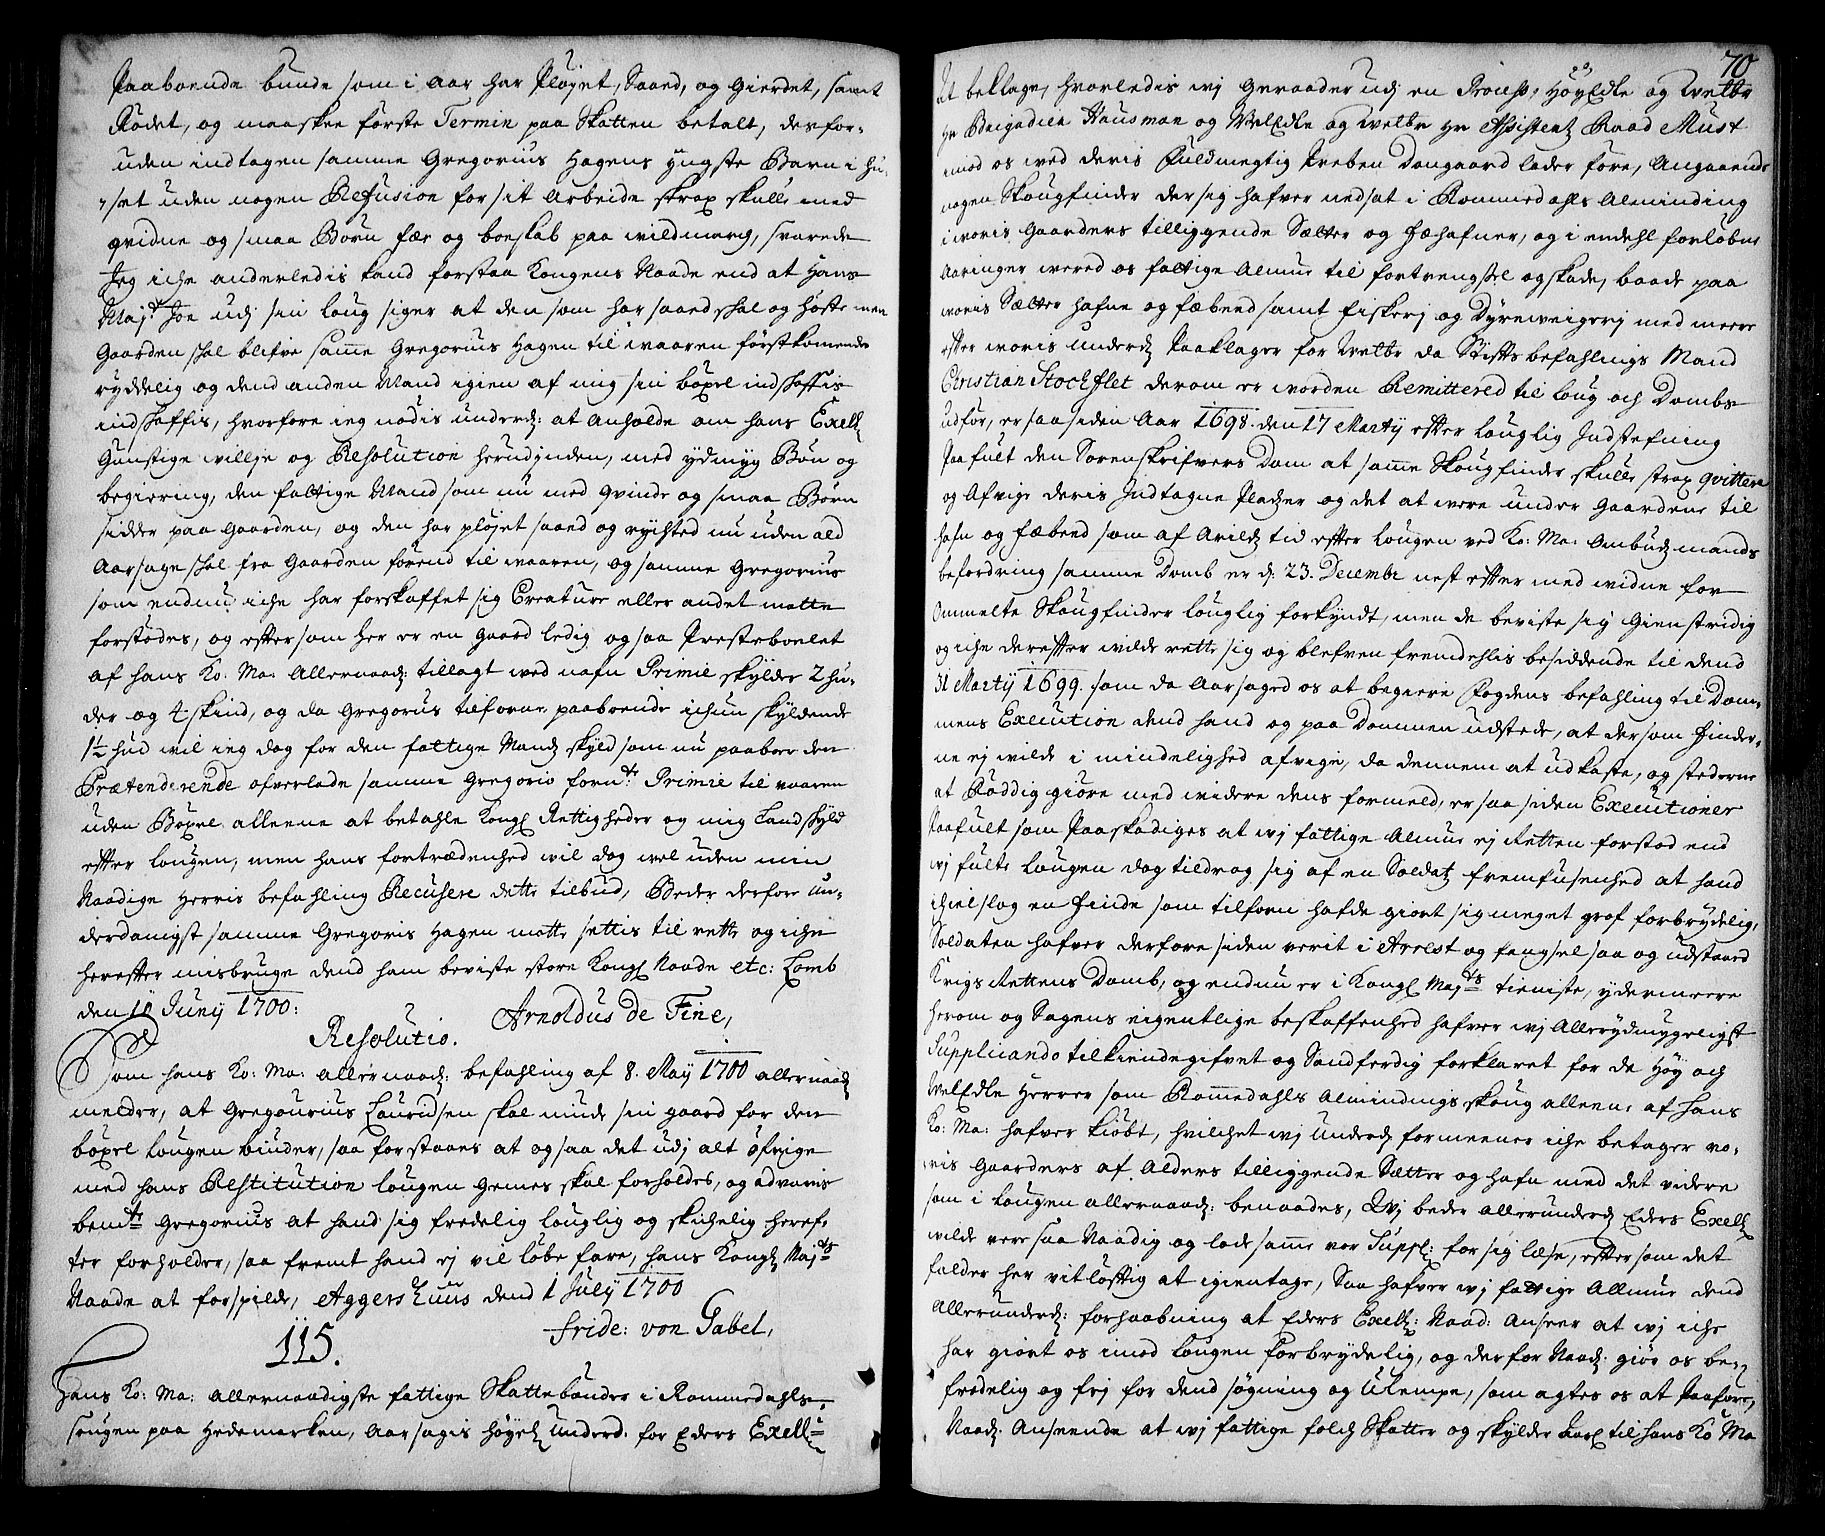 Paaboende bunde som i Aar har Pløyet, Saaed, og Gierdet, samt
Rødet, og maaskee første Termin paa Skatten betalt, desfor-
uden indtagen samme Gregorius Hagens yngste Barn i Hu-
set uden nogen Refusion for sit Arbeide strax skulle med
qvidne og smaa Børn fær og boeskab paa vildmarg, svarede
Jeg iche anderledis kand forstaa Kongens Naade end at Hans
Majt. Joe udj sin Loug siger at den som har saaed skal og høste men
Gaarden skal blifve samme Gregorius Hagen til waaren førstkomende
ryddelig og dend anden Mand igien af mig sin bøxel indskaffis
indskaffis, hvorfore ieg nødis underd: at Anholde om hans Exell:
Gunstige villje og Resolution herudjnden, med ydmyg Bøn og
begiering, den fattige Mand som nu med Qvinde og smaa Børn
sidder paa Gaarden, og den har pløjet saaed og rychted nu uden ald
Aarsage skal fra Gaarden førend til waaren, og samme Gregorius
som endnu iche har forskaffet sig Creature eller andet motte
forstødes, og efftersom her er en gaard ledig og saa Prestebordet
af hans Ko: Ma: Allernaad: tillagt ved nafn Primie skylder 2 hu-
der og 4 skind, og da Gregorus tilforne paaboende ichun skyldende
1½ hud vil ieg dog for den fattige Mands skyld som nu paaboer den
Prætenderende ofverlade samme Gregorio fornte: Primie til vaaren
uden Bøxel alleene at betahle Kongl Rettigheder og mig Landskyld
effter Lougen, men hans fortrædenhed vil dog vel uden min
Naadige Herris befahling Recusere dette tilbud, Beder derfore un-
derdanigst samme Gregoris Hagen motte settis til rette og iche
hereffter misbruge dend ham beviste store Kongl Naade etc: Lomb
den 10 Junij 1700:
Arnoldus de Fine,
Resolutio.
Som hans Ko: Ma: allernaad: befahling af 8. Maij 1700 allernaad
melder, at Gregourius Lauridsen skal niude sin gaard for den
bøxel Lougen binder, saa forstaaes at og saa det udj alt øfrige
med hans Restitution Lougen Gemes skal forholdes, og advaris
bemte Gregorius at hand sig fredelig louglig og skichelig heref-
ter forholder, saa fremt hand ej vil løbe fare, hans Kongl Majts
Naade at forspilde, Aggershuus dend 1 Julij 1700
Fride: von Gabel,
115.
Hans Ko: Ma: allernaadigste fattige Skattebønder i Rommedahls
Sougen paa Hedemarken, Aarsagis høyel underd: for Eders Exell:
70
At beklage, hvorledis wj Geraader udj en Process, HøyEdle og Welbr
Hr Brigadier Hausman og WelEdle og welbr Hr Assistentz Raad Must
imod os ved deris Fuldmegtig Preben Dongaard lader føre, Angaaende
nogen Skougfinder der sig hafver nedsat i Rommedahls Alminding
i woris Gaarders tilliggende Sætter og Fæhafner, og i endehl forløbne
Aaringer wered os fattige Almue til fortrengsel og skade, baade paa
woris Sætter hafne og fæbeed samt fiskerj og Dyreveigerj med meere
effter woris underd Paaklager for Welbr da Stiftsbefahlings Mand
Christian Stochflet derom er worden Remittered til Loug och Dombs
udfør, er saa siden Aar 1698. den 17 Martij effter louglig Indstefning
Paafult den Sorenskrifvers Dom at samme Skougfinder skulle strax qvittere
og Afvige deris Indtagne Pladzer og det at were under Gaardene til
hafn og fæbeed som af Arilds tid effter Lougen ved Ko: Ma: Ombudsmands
befordring samme Domb er d. 23. Decembr nest effter med widne for
Ommelte Skougfinder louglig forkyndt, men de beviste sig Gienstridig
og iche dereffter wilde rette sig og blefven fremdehlis besiddende til dend
31 Martij 1699. som da Aarsaged os at begiere Fogdens befahling til Dom-
mens Execution dend hand og paa Dommen udstede, at dersom Finder-
ne ej wilde i mindelighed afvige, da dennem at udkaste, og stederne
at Røddig giøre med widere dens formeld, er saa siden Executioner
Paafult som Paaskadiges at wj fattige Almue ej Retten forstod end
wj fulte Lougen dog tildrog sig af en Soldatz fremfusenhed at hand
ihielslog en Finde som tilforn hafde giort sig meget grof forbrydelig,
Soldaten hafver derfore siden verit i Arrest og fengsel saa og udstaaed
Krigs Rettens Domb, og endnu er i Kongl Majts tieniste, ydermeere
herom og Sagens eigentlige beskaffenhed hafver wj Allerydmygeligst
Supplicando tilkiendegifvet og Sandferdig forklaret for de Høy och
WelEdle Herrer som Romedahls Almindings skoug alleene af Hans
Ko: Ma: hafver kiøbt, hvilchet wj underd formeener iche betager wo-
ris Gaarders af Alders tilliggende Sætter og hafn med det videre
som i Lougen allernaad: benaades, Wj beder allerunderd Eders Exell
wilde vere saa Naadig og lade samme vor Suppl: for sig læse, efftersom det
falder her vitløftig at igientage, Saa hafver wj fattige Allmue dend
Allerunderd: forhaabning at Eders Exell: Naad: Anseer at wj iche
har giort os imod Lougen forbrydelig, og derfor Naad: giør os be-
fredelig og frj for dend søgning og Ulempe, som agtes os at Paaføre,
Naad: Anseende at wj fattige folch Skatter og skylder Aarl til hans Ko Ma